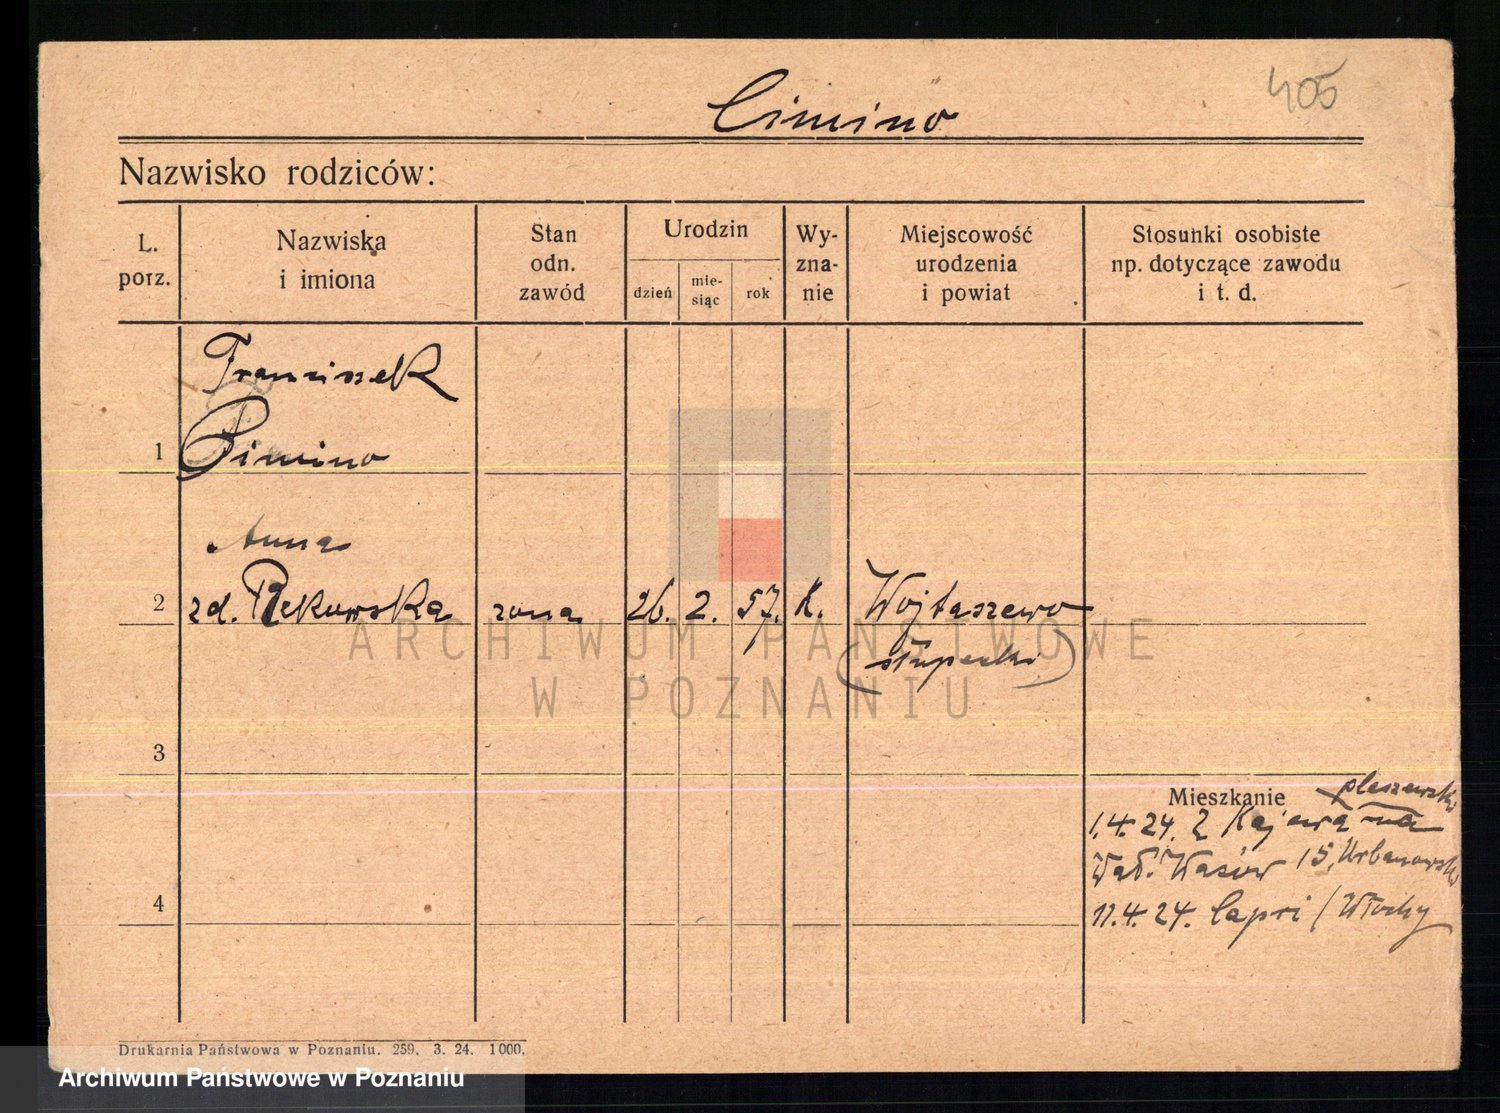 Cimino
405
Nazwisko rodziców:
L. porz.
Nazwiska i imiona
Stan odn. zawód
Urodzin
dzień
mie-
siąc
rok
Wy-
zna-
nie
Miejscowość
urodzenia
i powiat
Stosunki osobiste
np. dotyczące zawodu
i t. d.
Franciszek
1 Cimino
Anna
2 zd. Rekowska żona 26. 2. 57. K. Wojtaszewo
(słupecki)
ARCHIWUM PAŃSTWOWE
W POZNANIU
3
Mieszkanie
pleszewski
1.4.24. Z Kajewa
Wał. Kasiów 15, Urbanowski
4
11.4.24. Capri / Włochy
Drukarnia Państwowa w Poznaniu. 259. 3. 24. 1000.
Archiwum Państwowe w Poznaniu